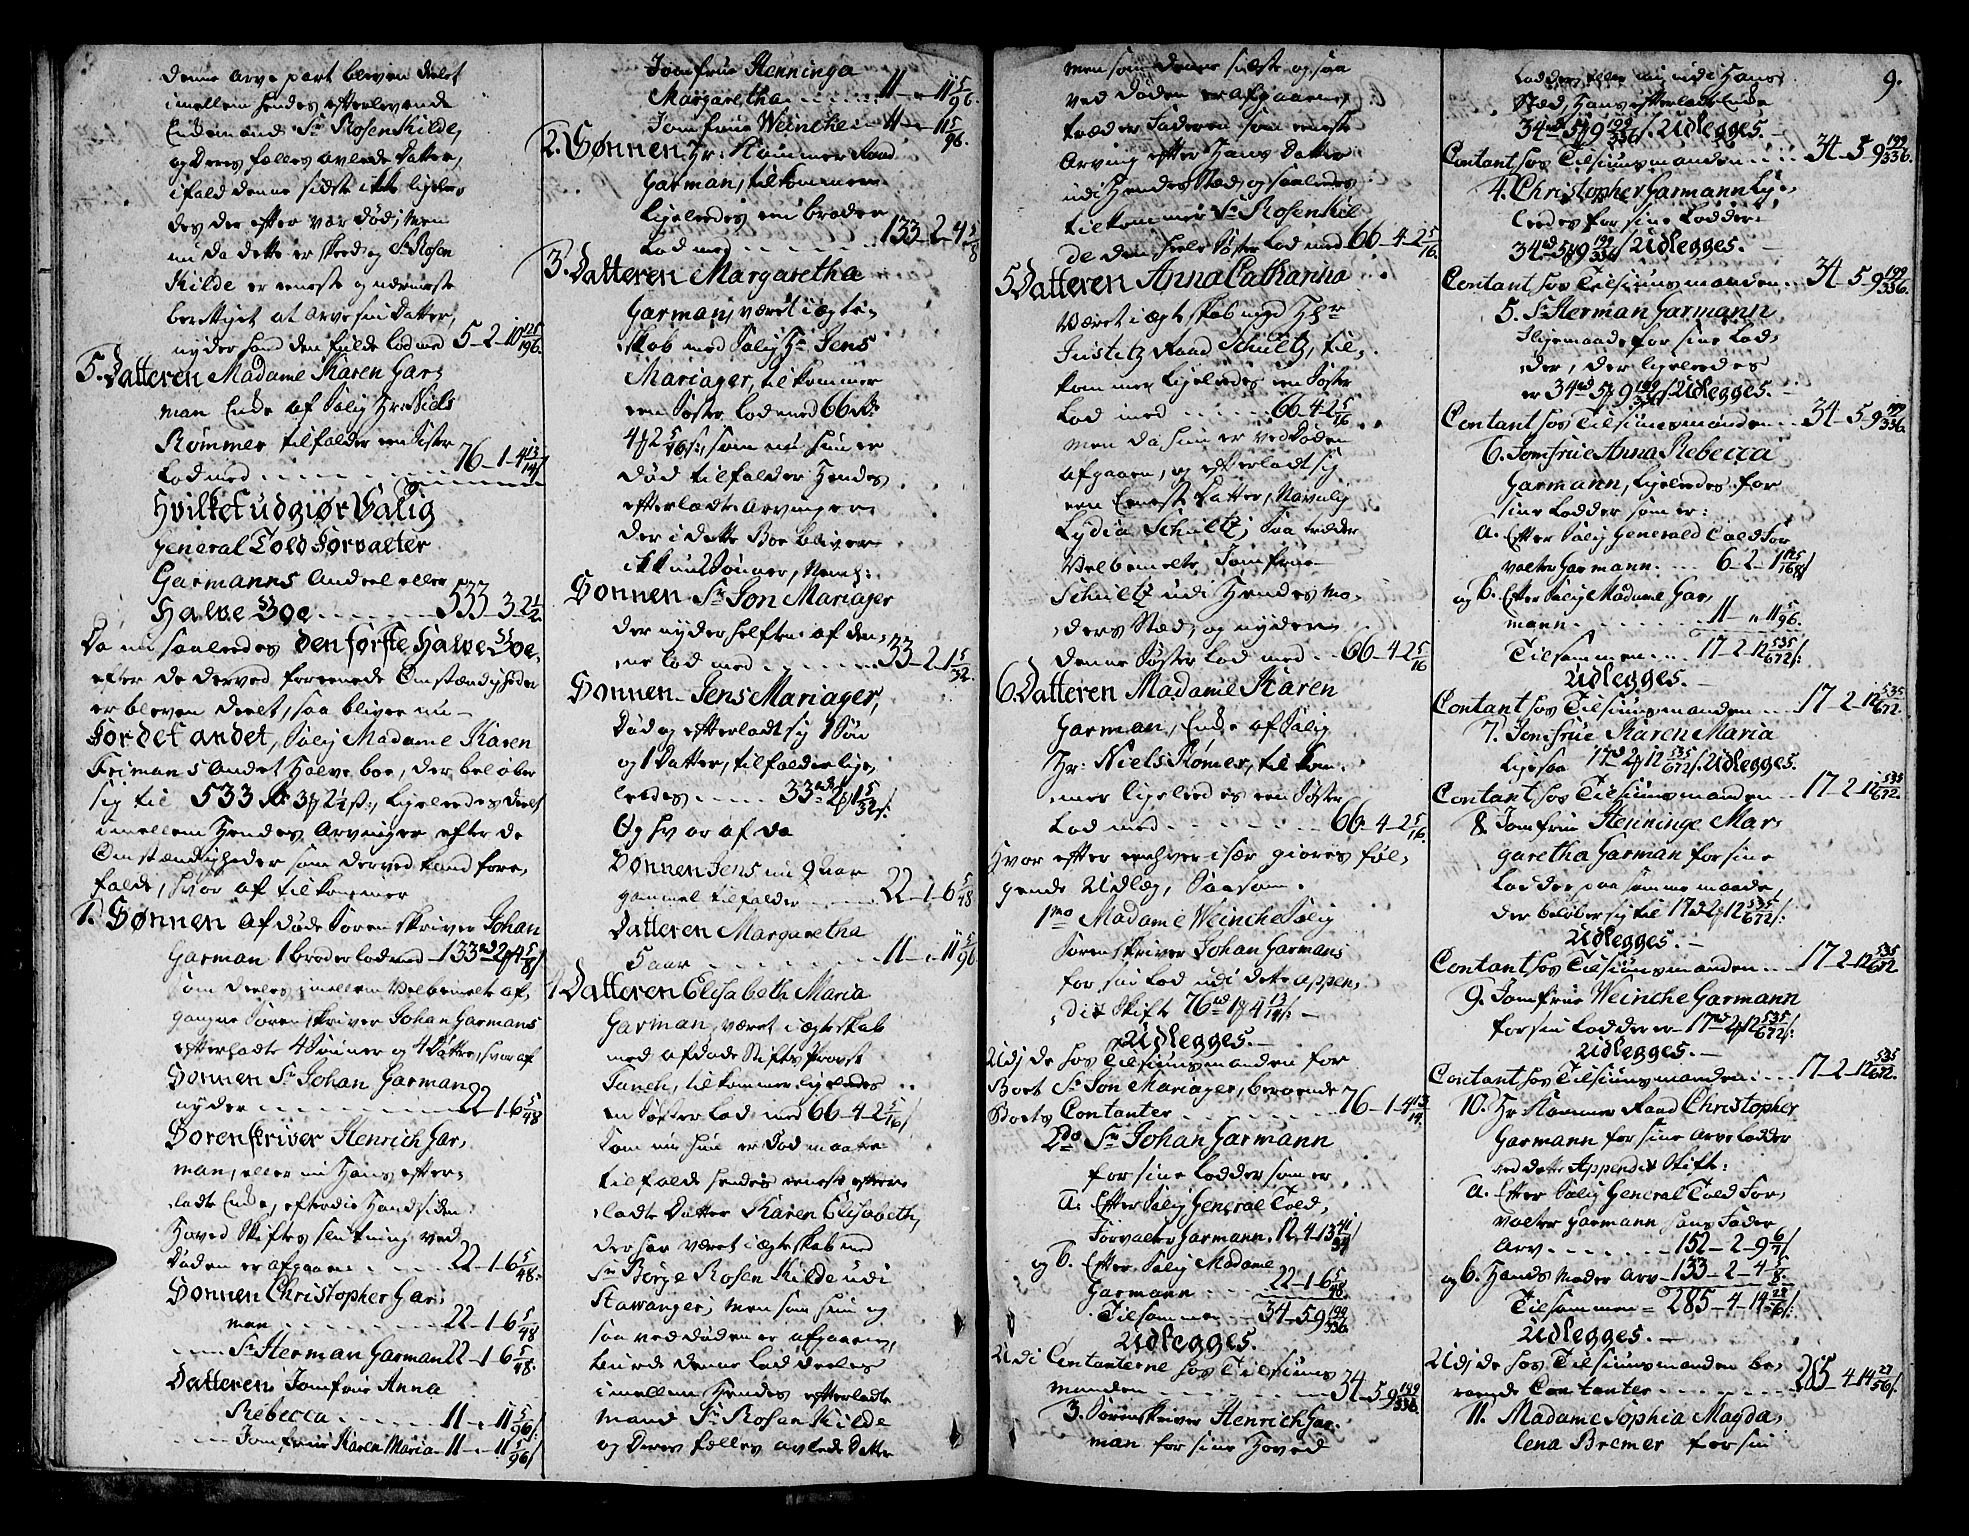 denne Arve part bleven deelt
imellem hendes efterlevende
Enkemand Sr Rosenkilde,
og deres fælles avlede Datter,
ifald denne sidste ikke ligeles
des der efter var død; Men
nu da dette er skeed, og Sr Rosen
Kilde er eeneste og nærmeste
berettiget at arve sin Datter,
nyder hand den fulde Lod med 5-2-10 125/196.
5. Datteren Madame Karen Gar,
man Enke af Salig Hr: Niels
Rømmer tilfalder een Søster
Lod med 76-1-4 13/14
Hvilket udgiør Salig
General Told Forvalter
Garmanns Andeel eller
Halve Boe 533-3-2 1/2.
Da nu saaledes den første Halve Boe,
efter de derved foreenede Omstændigheder
er bleven deelt, saa bliver nu
For det andet, Salig Madame Karen
Frimans Andet Halve boe, der beløber
sig til 533 3 2 1/2 ligeledes deelt
imellem Hendes Arvinger efter de
Omstændigheder som derved kand fore,
falde, hvor af tilkommer
1. Sønnen afdøde Sorenskriver Johan
Garman 1 broder Lod med 133 2 4 5/8
som deeles imellem Velbemelte af,
gangne Sorenskriver Johan Garmans
efterladte 4 Sønner og 4 Døttre, hvor af
Sønnen Sr Johan Garman
nyder 22-1-6 5/48
Sorenskriver Henrich Gar,
man, eller nu Hans efter,
ladte Enke, efterdie Hand siden
Hoved Skiftes slutning ved
Døden er afgaaen 22-1-6 5/48.
Sønnen Christopher Gar,
man 22-1-6 5/48
Sr Herman Garman 22-1-6 5/48.
Datteren Jomfrue Anna
Rebecca 11-"-11 5/96
Jomfrue Karen Maria 11-"-11 5/96
Jomfrue Henninga
Margaretha 11-"-11 5/96.
Jomfrue Weinche 11-"-11 5/96.
2. Sønnen Hr: Kammer Raad
Garman, tilkommer
ligeledes een broder
Lod med 133-2-4 5/8
3. Datteren Margaretha
Garman, været i ægte,
skab med Salig Hr Jens
Mariager, tilkommer
een Søster Lod med 66
4 2 5/16, som nu hun er
død tilfalder Hendes
efterladte Arvinger
der i dette Boe bliver
ikkun 2 Sønner, Neml:
Sønnen Sr Jon Mariager
der nyder helften af den,
ne Lod med 33-2-1 5/32.
Sønnen Jens Mariager,
død og efterladt sig 1 Søn
og 1 Datter, tilfalder lige,
leedes 33 2 1 5/32
Og hvor af da
Sønnen Jens nu 9 aar
gammel tilfalder 22-1-6 5/48
Datteren Margaretha
5 aar 11-"-11 5/96
4 Datteren Elisabeth Maria
Garman, været i ægteskab
med afdøde Stifts Provst
Tanch, tilkommer ligeledes
en Søster Lod med 66-4-2 5/16
som nu hun er død maatte
tilfalde hendes eeneste efter
ladte Datter Karen Elisabeth,
der har været i ægteskab med
Sr Børge Rosenkilde udi
Stawanger; men som hun og
saa ved døden er afgaaen,
burde denne Lod deeles
imellem Hendes efterladte
Mand Sr Rosenkilde
og deres fælles avlede Datter
men som denne sidste og saa
ved døden er afgaaen,
træder Faderen som eneste
Arving efter Hans Datter
udi Hendes Stæd, og saaledes
tilkommer Sr Rosenkil
de den heele Søster Lod med 66-4-2 5/16.
5 Datteren Anna Catharina
Været i ægteskab med Hr
Justitz Raad Schultz, til,
kommer ligeledes een Søster
Lod med 66-4-2 5/16
men da hun er ved Døden
afgaaen, og efterladt sig
een Eeneste Datter, Navnlig
Lydia Schultz; Saa træder
Velbemelte Jomfrue
Schultz udi Hendes Mo,
ders Stæd, og nyder
denne Søster Lod med 66-4-2 5/16
6. Datteren Madame Karen
Garman, Enke af Salig
Hr: Niels Rømer, tilkom,
mer ligeledes een Søster
Lod med 66-4-2 5/16.
Hvor efter enhver især giøres føl,
gende Udlæg, Saasom.
1mo Madame Weinche Salig
Sorenskriver Johan Garmans
for sin Lod udi dette appen,
dix Skifte 76 1 4 13/14
Udlegges.
Udi de hos Tilsiunsmanden for
Boet Sr Jon Mariager, beroende
Boets Contanter 76-1-4 13/14.
2do Sr Johan Garmann
for sine Lodder som er,
a. Efter Salig General Told,
Forvalter Garmann. 12-4-13
og b. Efter Salig Madame
Garmann 22-1-6 5/48
Tilsammen 34-5-9 199/336
Udlegges.
Udi Contanterne hos Tilsiuns
manden 34-5-9 199/336.
3. Sorenskriver Henrich Gar,
man for sine Hoved
9.
Lodder eller nu udi Hans
Stæd, Hans efterladte Enke
34 5 9 199/336 Udlegges.
Contant hos Tilsiunsmanden 34-5-9 199/336.
4. Christopher Garmann Lige,
leedes for sine Lodder
34 5 9 199/336 Udlegges.
Contant hos Tilsiunsmanden 34-5-9 199/336.
5. Sr Herman Garmann,
Iligemaade for sine Lod,
der, der ligeleedes
er 34 5 9 199/336 Udlegges.
Contant hos Tilsiunsmanden 34-5-9 199/336.
6. Jomfrue Anna Rebecca
Garmann, ligeledes for
sine Lodder som er:
a. Efter Salig General Told For
valter Garmann 6-2-1 125/168
og b. Efter Salig Madame Gar,
mann 11-"-11 5/96.
Tilsammen 17-2-12 535/672
Udlegges.
Contant hos Tilsiunsmanden 17-2-12 535/672
7. Jomfrue Karen Maria
ligesaa 17 2 12 535/672 Udlegges.
Contant hos Tilsiunsmanden 17-2-12 535/672.
8. Jomfrue Henninge Mar,
garetha Garman for sine
Lodder paa samme maade,
der beløber sig til 17 2 12 535/672
Udlegges.
Contant hos Tilsiunsmanden 17-2-12 535/672
9. Jomfrue Weinche Garmann
for sin Lodder er 17 2 12 535/672
Udlegges.
Contant hos Tilsiunsmanden 17-2-12 535/672.
10. Hr Kammer Raad Christopher
Garmann for sine Arve Lodder
ved dette Appendix Skifte:
a. Efter Salig General Told For,
valter Garmann hans Fader
Arv 152-2-9 6/7
og b. Hands Moder Arv 133-2-4 5/8.
Tilsammen 285-4-14 27/56
Udlegges.
Udi de hos Tilsiunsmanden be,
roende Contanter 285-4-14 27/56
11. Madame Sophia Magda,
lena Bremer for sin